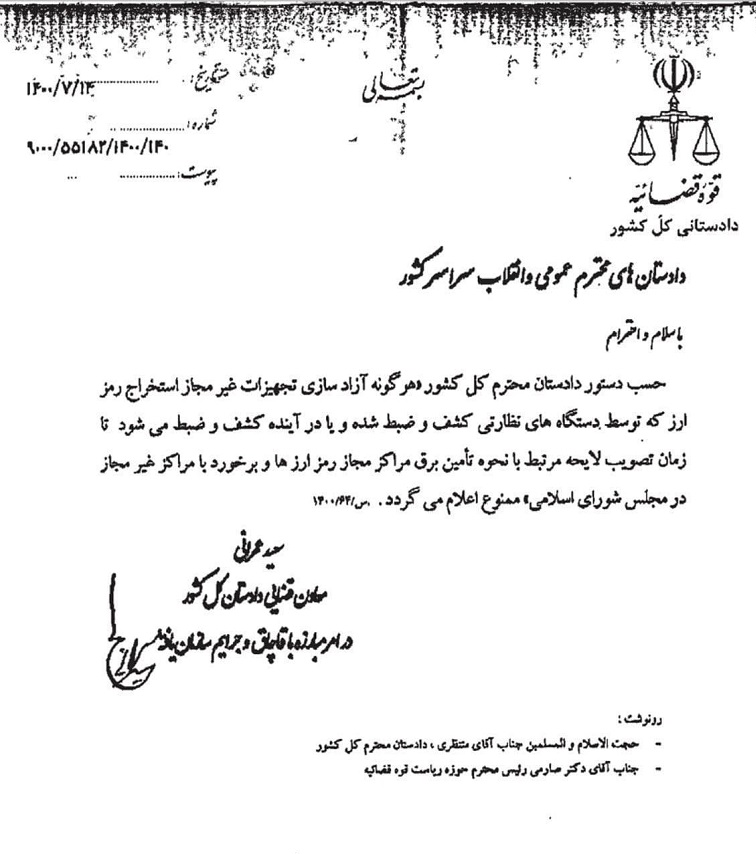 بسمه تعالی
تاریخ: ۱۴۰۰/۷/۱۴
شماره:
۹۰۰۰/۵۵۱۸۲/۱۴۰۰/۱۴۰
پیوست:
قوه قضائیه
دادستانی کل کشور
دادستان های محترم عمومی و انقلاب سراسر کشور
با سلام و احترام
حسب دستور دادستان محترم کل کشور «هرگونه آزاد سازی تجهیزات غیر مجاز استخراج رمز
ارز که توسط دستگاه های نظارتی کشف و ضبط شده و یا در آینده کشف و ضبط می شود تا
زمان تصویب لایحه مرتبط با نحوه تأمین برق مراکز مجاز رمز ارز ها و برخورد با مراکز غیر مجاز
در مجلس شورای اسلامی» ممنوع اعلام می گردد. س/۱۴۰۰/۶۴
سعید عمرانی
معاون قضایی دادستان کل کشور
در امر مبارزه با قاچاق و جرایم سازمان یافته
رونوشت:
- حجت الاسلام و المسلمین جناب آقای منتظری، دادستان محترم کل کشور
- جناب آقای دکتر صارمی رئیس محترم حوزه ریاست قوه قضائیه